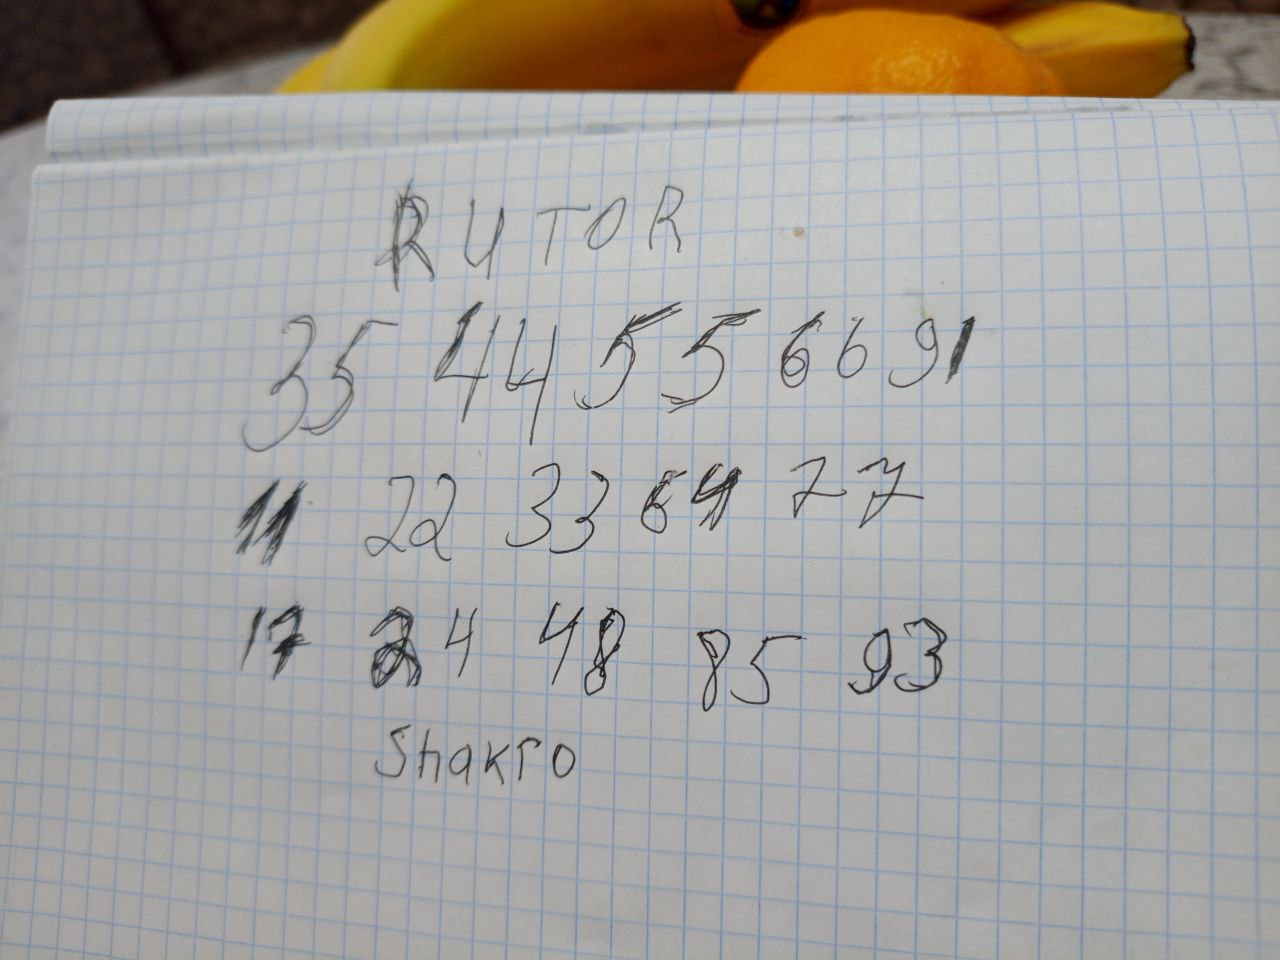 RUTOR
35 44 55 66 91
11 22 33 64 77
17 24 48 85 93
Shakro